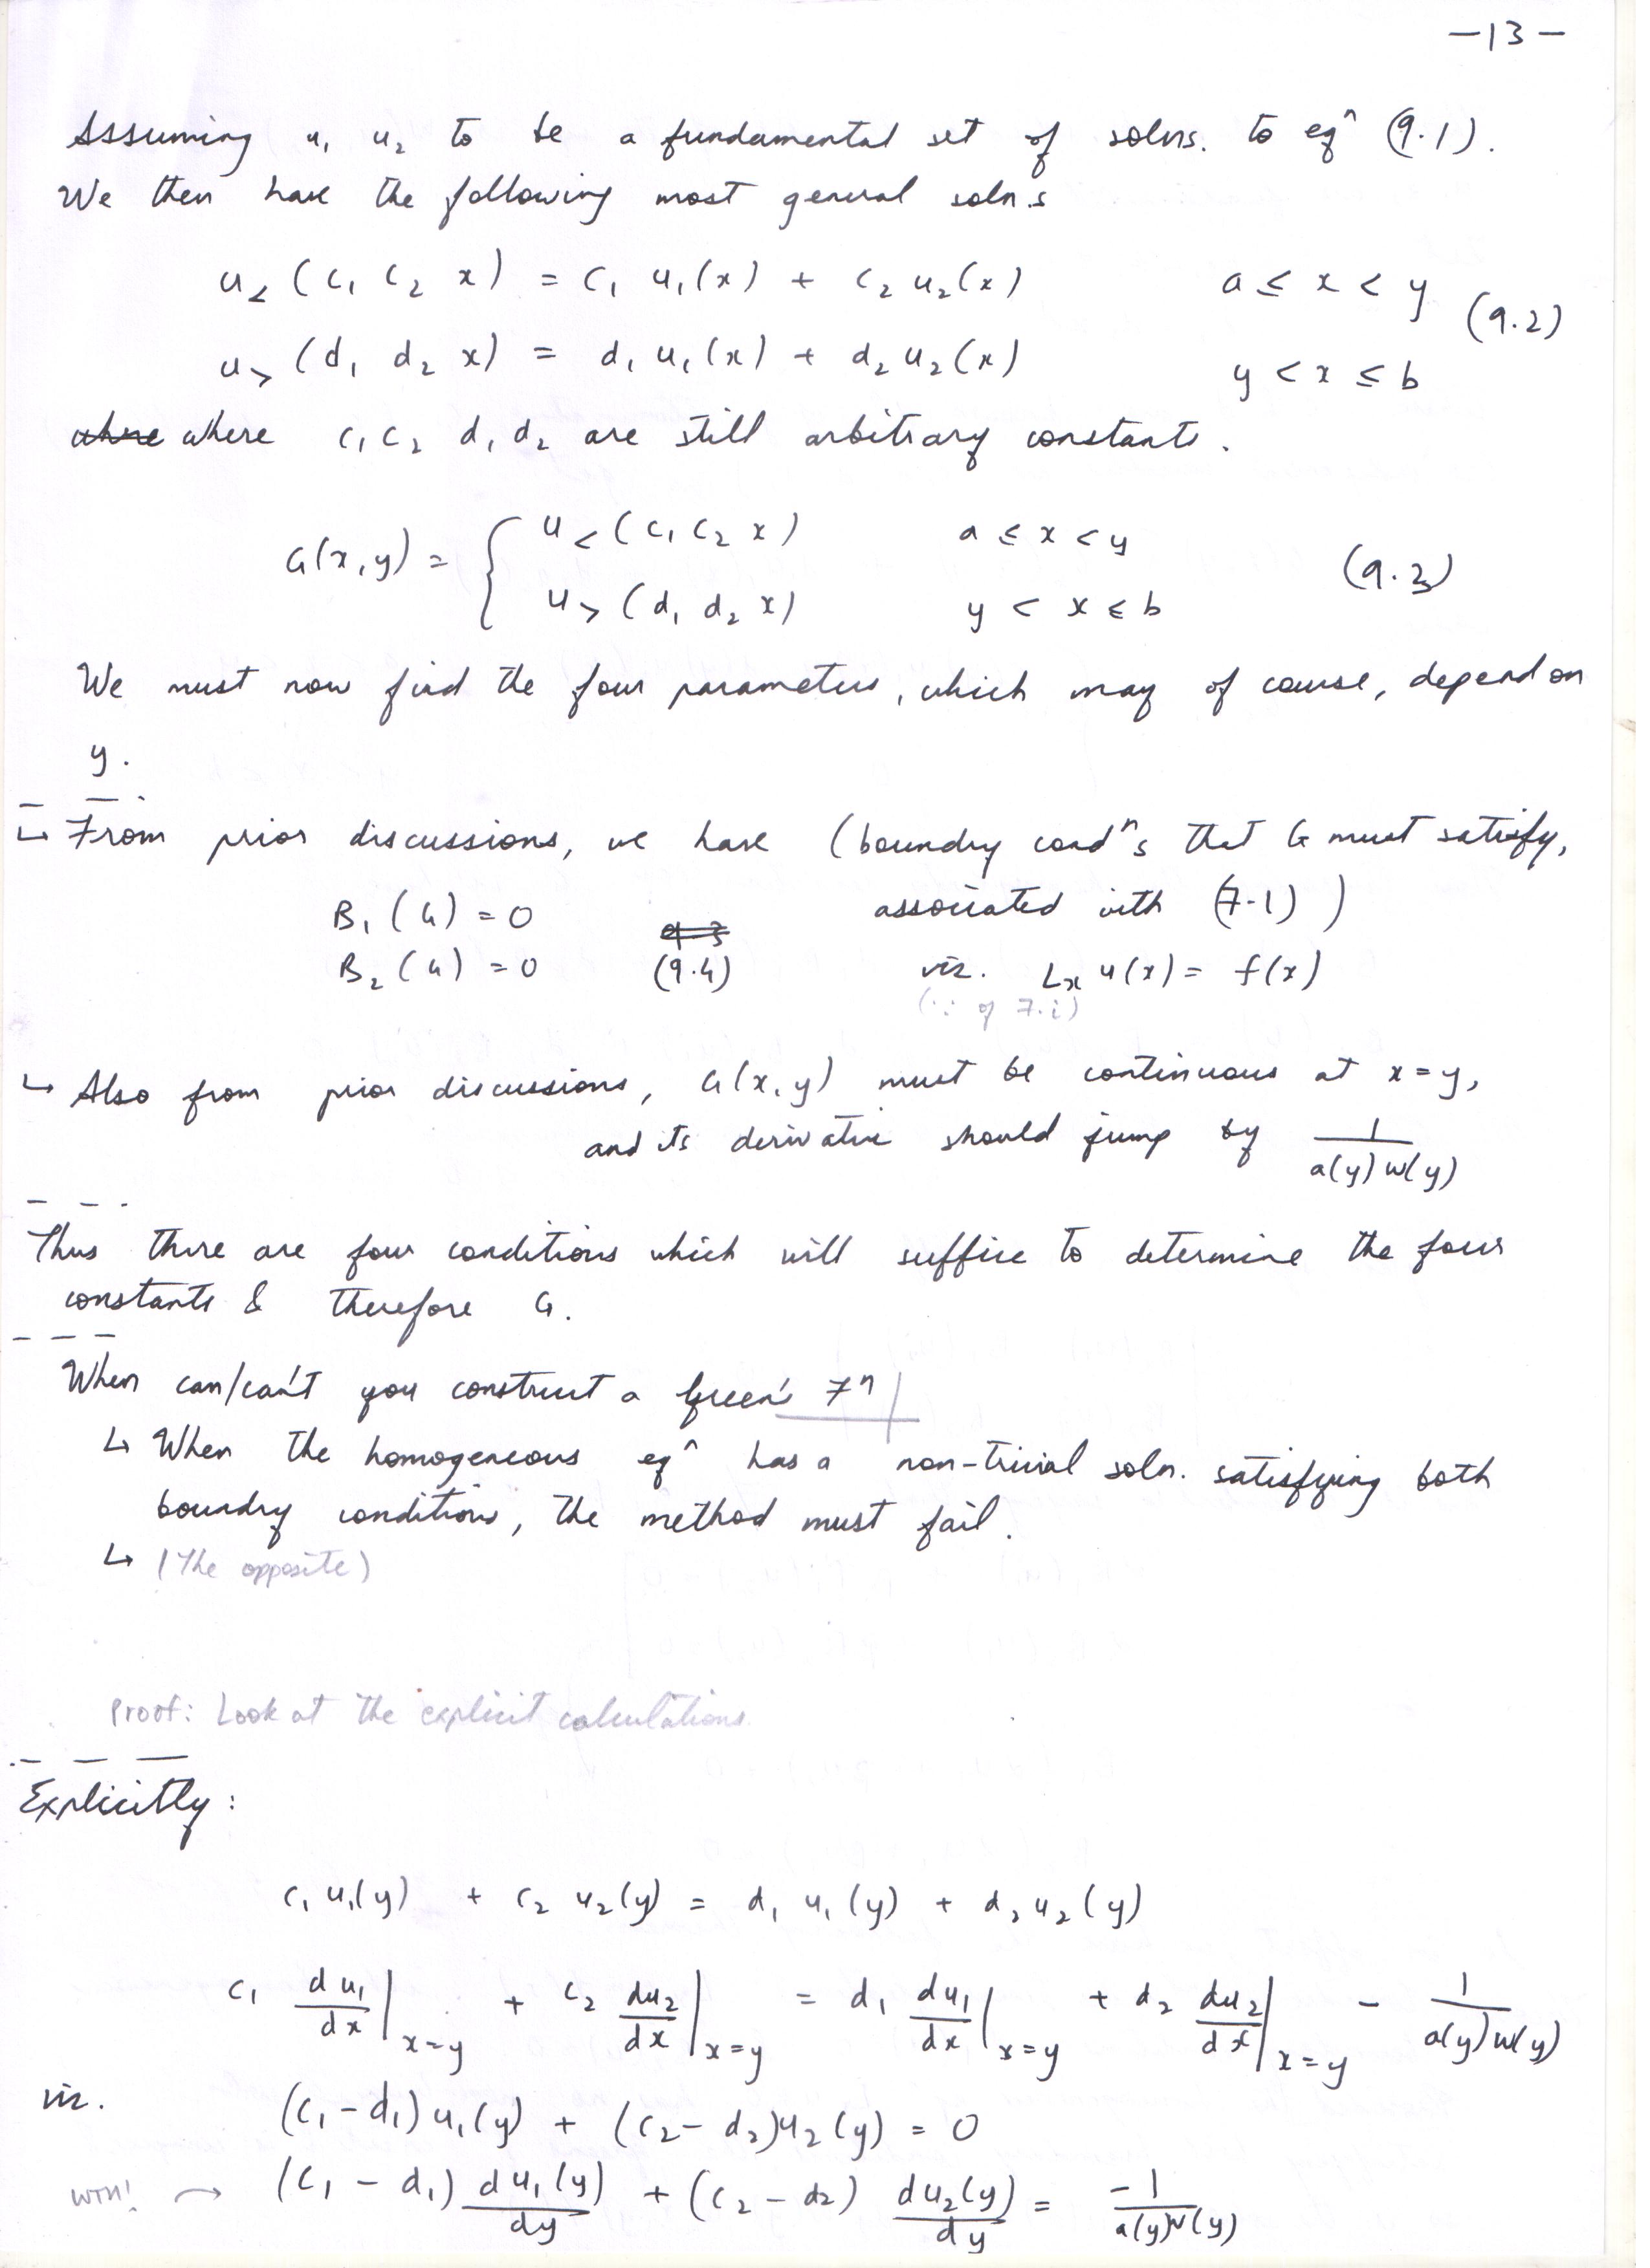 -13-
Assuming u₁ u₂ to be a fundamental set of solns. to eqⁿ (9.1).
We then have the following most general soln.s
u< (c₁ c₂ x) = c₁ u₁(x) + c₂ u₂(x) a ≤ x < y (9.2)
u> (d₁ d₂ x) = d₁ u₁(x) + d₂ u₂(x) y < x ≤ b
where c₁ c₂ d₁ d₂ are still arbitrary constants.
G(x,y) = { u< (c₁ c₂ x) a ≤ x < y (9.3)
u> (d₁ d₂ x) y < x ≤ b
We must now find the four parameters, which may of course, depend on
y.
↳ From prior discussions, we have (boundry condⁿs that G must satisfy,
B₁(G) = 0 associated with (7.1) )
B₂(G) = 0 (9.4) viz. Lx u(x) = f(x)
(∵ of 7.i)
↳ Also from prior discussions, G(x,y) must be continuous at x=y,
and its derivative should jump by 1/(a(y) w(y))
Thus there are four conditions which will suffice to determine the four
constants & therefore G.
When can/can't you construct a Green's Fⁿ
↳ When the homogeneous eqⁿ has a non-trivial soln. satisfying both
boundry conditions, the method must fail.
↳ (The opposite)
Proof: Look at the explicit calculations
Explicitly:
c₁ u₁(y) + c₂ u₂(y) = d₁ u₁(y) + d₂ u₂(y)
c₁ du₁/dx |x=y + c₂ du₂/dx |x=y = d₁ du₁/dx |x=y + d₂ du₂/dx |x=y - 1/(a(y) w(y))
viz. (c₁-d₁)u₁(y) + (c₂-d₂)u₂(y) = 0
→ (c₁-d₁) du₁(y)/dy + (c₂-d₂) du₂(y)/dy = -1/(a(y)w(y))